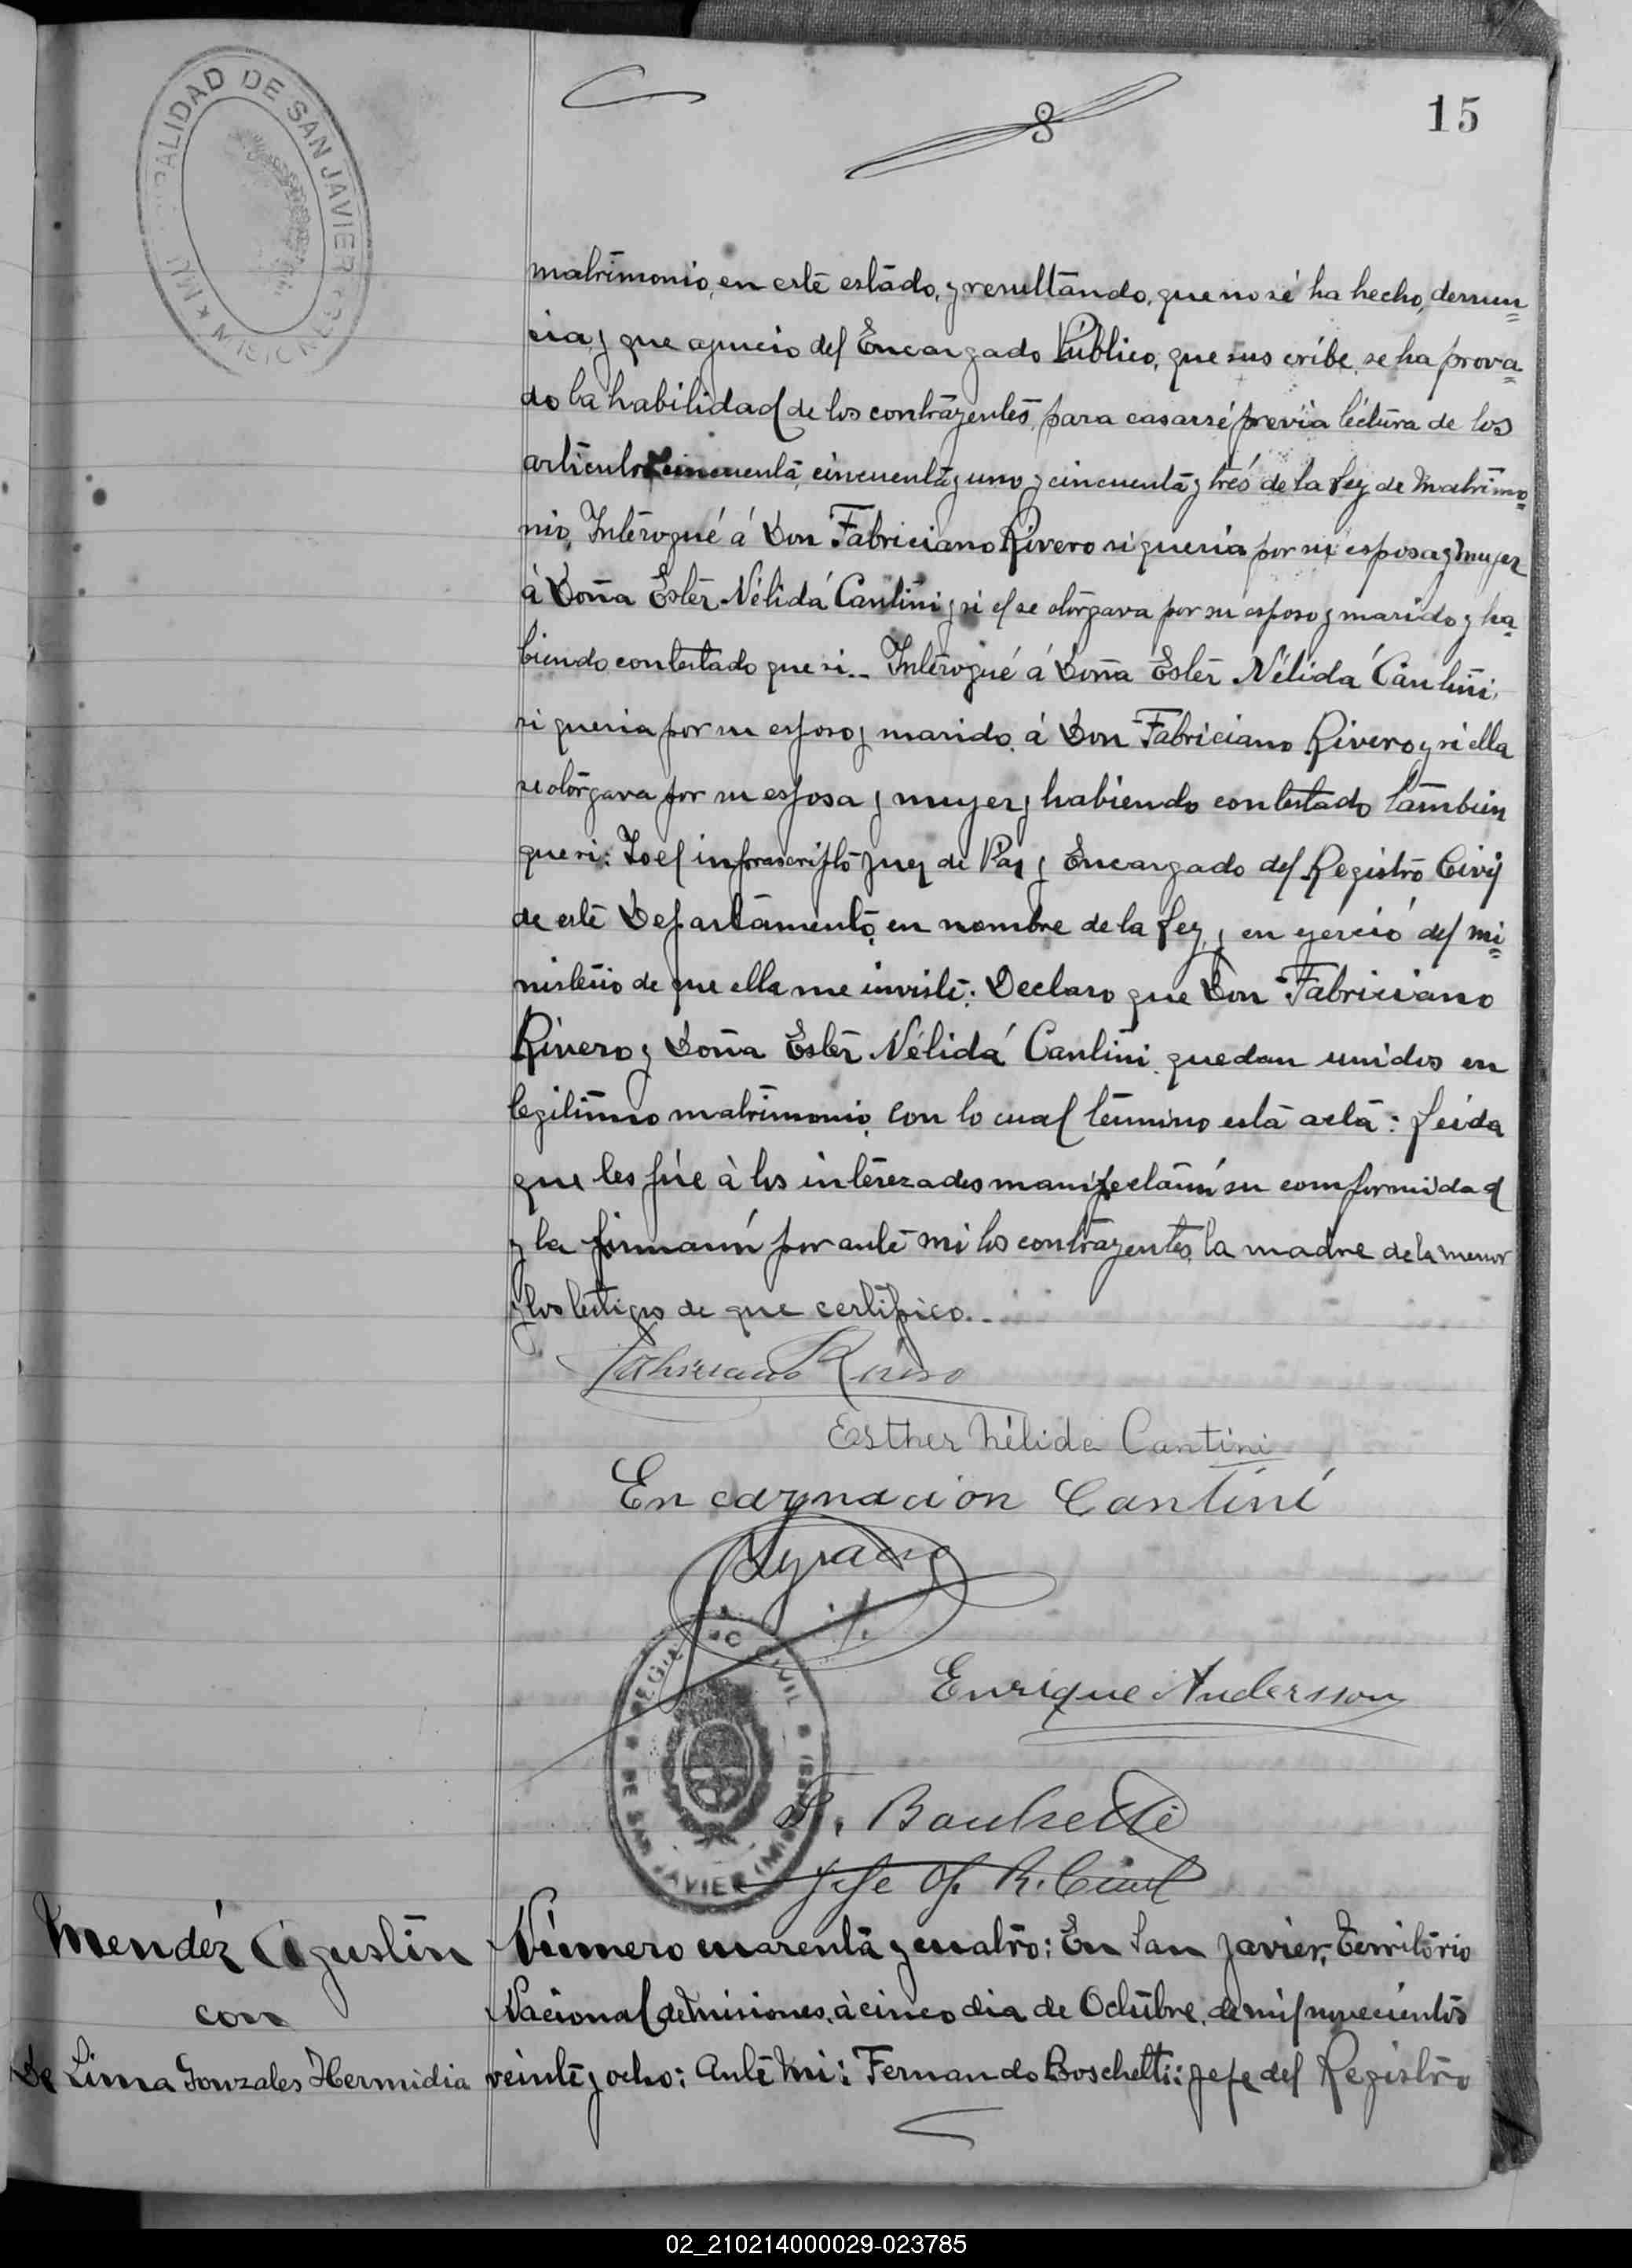 15
8
MUNICIPALIDAD DE SAN JAVIER
MISIONES
matrimonio, en este estado, y resultando, que no sé ha hecho, denun=
cia, y que ajuicio del Encargado Público, que sus cribe, se ha prova=
do la habilidad de los contrayentes, para casarsé previa léctura de los
articulos cincuenta, cincuenta y uno y cincuenta y trés de la Ley de Matrimo=
nio, Interogué á Don Fabriciano Rivero si queria por su esposa y mujer
á Doña Ester Nélida Cantini y si el se otorgava por su esposo y marido y ha=
biendo contestado que si.. Interogué á Doña Ester Nélida Cantini,
si queria por su esposo y marido á Don Fabriciano Rivero y si ella
se otorgava por su esposa y mujer y habiendo contestado tambien
que si: Yo el infrascripto Juez de Paz y Encargado del Registro Civil
de este Departamento, en nombre de la Ley, y en ejercio del mi=
nisterio de que ella me inviste: Declaro que Don Fabriciano
Rivero y Doña Ester Nélida Cantini quedan unidos en
legitimo matrimonio, con lo cual termino esta acta: Leida
que les fúe à los interezados manifestarón su comformidad
y la firmarón por ante mi los contrayentes, la madre de la menor
y los testigos de que certifico..
Fabriciano Rivero
Esther Nélida Cantini
Encarnacion Cantini
REGISTRO CIVIL
DE SAN JAVIER (MISIONES)
Enrique Andersson
F. Boschetti
Jefe Of. R. Civil
Mendéz Agustin
con
De Lima Gonzales Hermidia
Número cuarenta y cuatro: En San Javier, Territorio
Nacional de Misiones, à cinco dia de Octubre, de mil novecientos
veinte y ocho: Ante Mi: Fernando Boschetti: Jefe del Registro